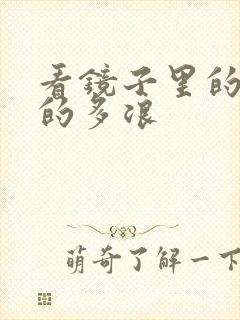 看镜子里的
的多浪
萌奇了解一下